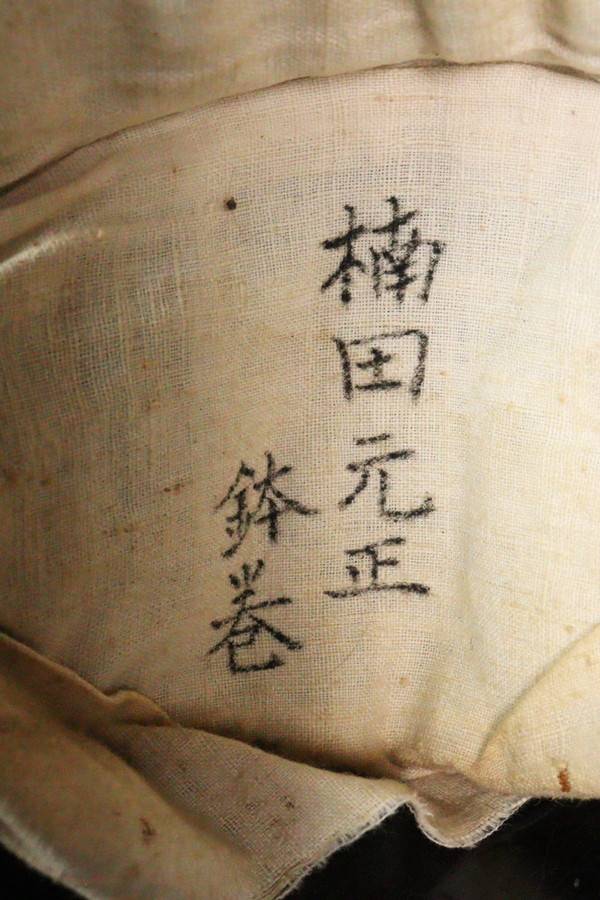 楠田元正
鉢巻